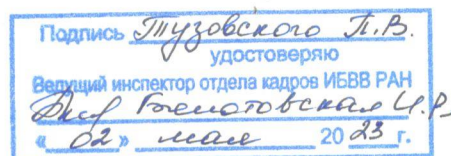 Подпись Тузовского П.В.
удостоверяю
Ведущий инспектор отдела кадров ИБВВ РАН
И.Р.
«02» мая 2023 г.